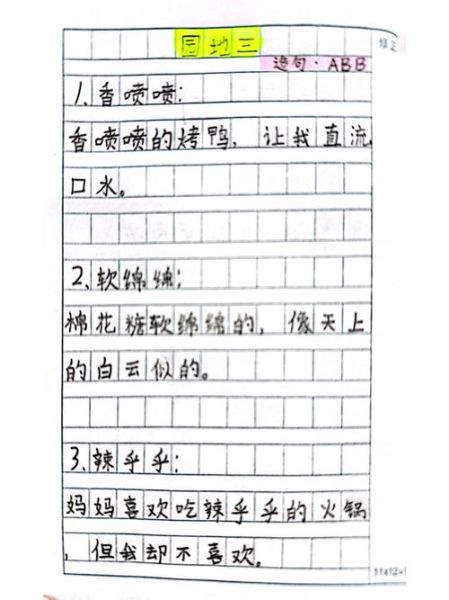 园地三
造句·ABB
1、香喷喷:
香喷喷的烤鸭,让我直流
口水。
2、软绵绵:
棉花糖软绵绵的,像天上
的白云似的。
3、辣乎乎:
妈妈喜欢吃辣乎乎的火锅
,但我却不喜欢。